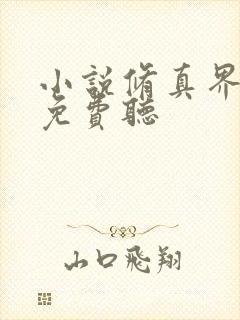 小說脩真界
免費聽
山口飛翔